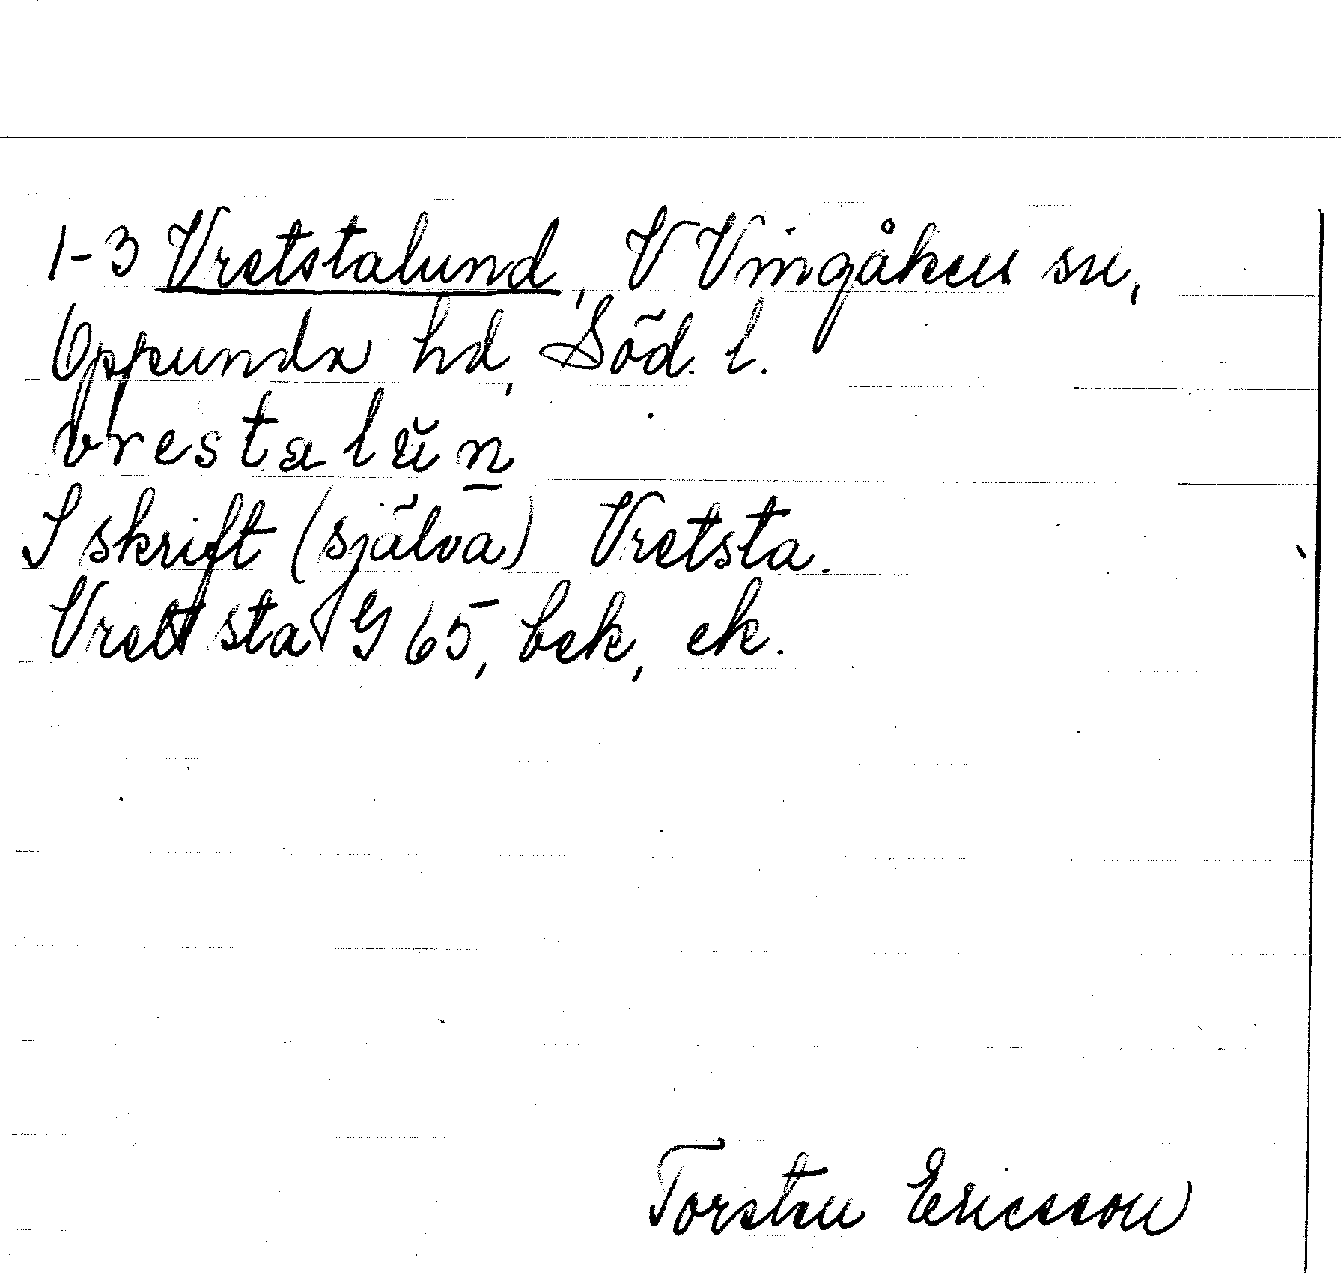 1-3 Vretstalund, V Vingåkers sn,
Oppunda hd, Söd. l.
vrestalŭn
I skrift (själva) Vretsta.
Vretsta G 65, bek, ek.
Torsten Ericsson